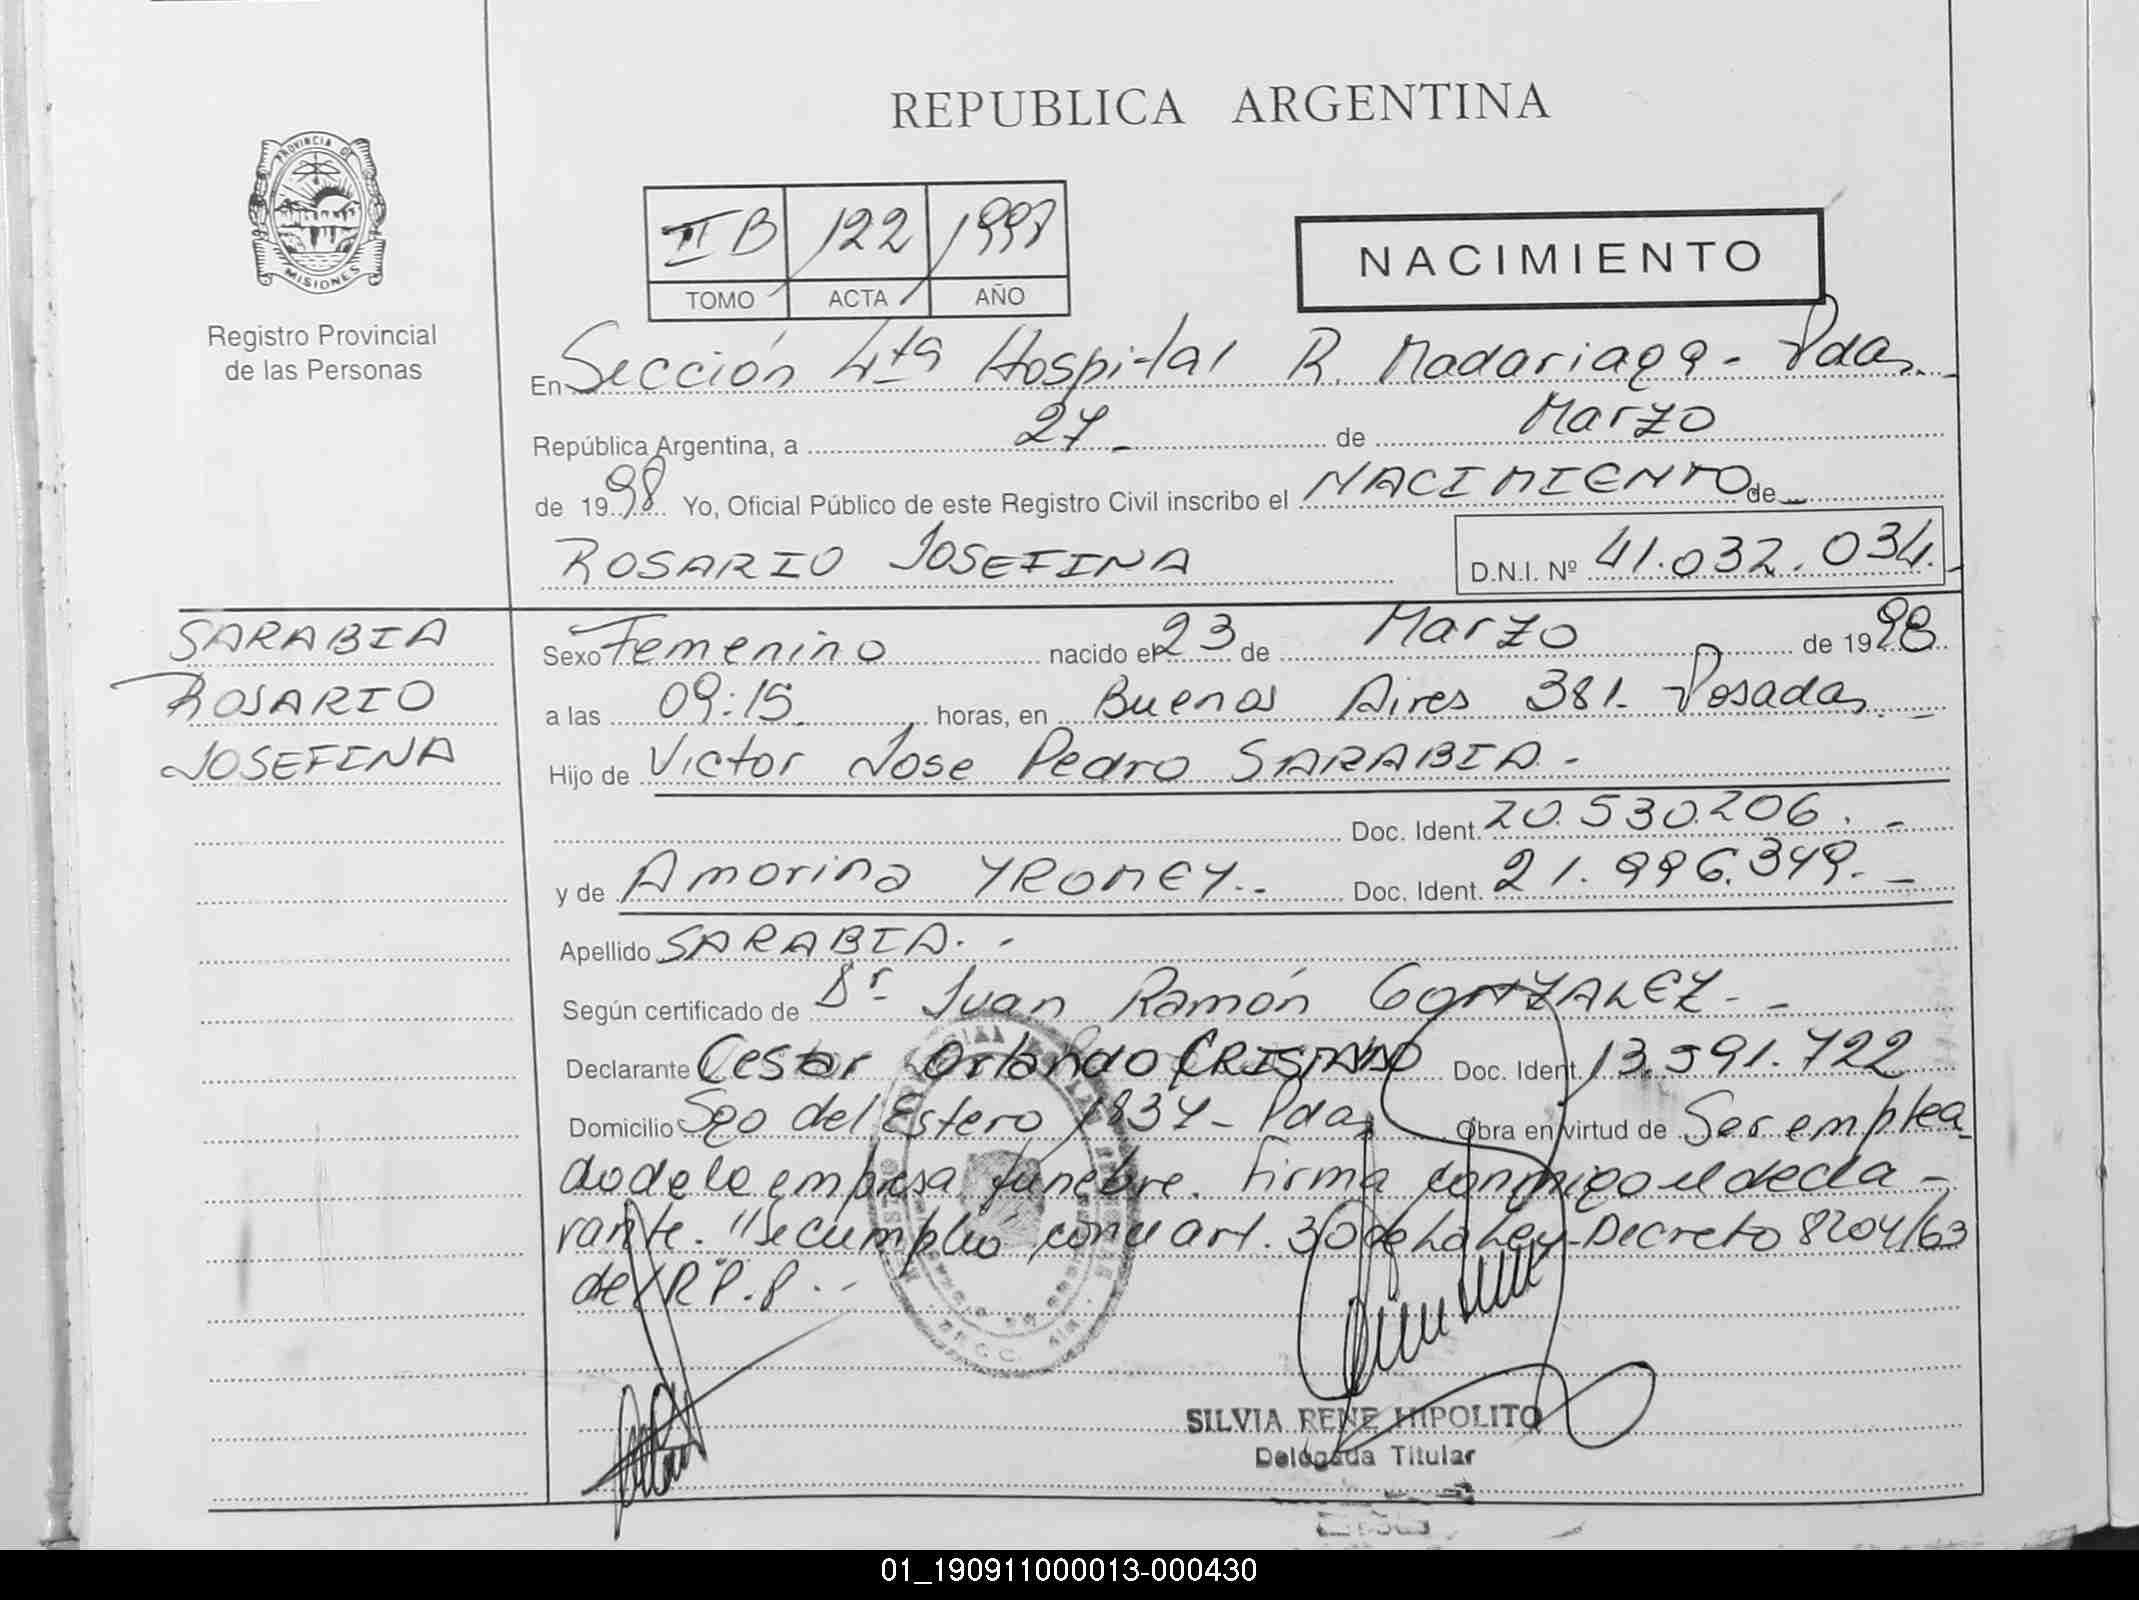 REPUBLICA ARGENTINA
PROVINCIA DE
MISIONES
Registro Provincial
de las Personas
II B 122 1998
TOMO ACTA AÑO
NACIMIENTO
En Sección 4ta Hospital R. Madariaga - Pdas.-
República Argentina, a 27- de Marzo
de 1998 Yo, Oficial Público de este Registro Civil inscribo el NACIMIENTO de -
ROSARIO JOSEFINA D.N.I. Nº 41.032.034.-
SARABIA
ROSARIO
JOSEFINA
Sexo Femenino nacido el 23 de Marzo de 1998
a las 09:15 horas, en Buenos Aires 381- Posadas.-
Hijo de Victor Jose Pedro SARABIA.-
Doc. Ident. 20.530.206.-
y de Amorina YROMEY.- Doc. Ident. 21.996.349.-
Apellido SARABIA.-
Según certificado de Dr. Juan Ramón GONZALEZ.-
Declarante Cesar Orlando Doc. Ident. 13.591.722
Domicilio Sgo del Estero 1837- Pdas Obra en virtud de Ser emplea-
do de la empresa fúnebre. Firma conmigo el decla-
rante. "Se cumplió con el art. 30 de La Ley-Decreto 8204/63
del R.P.P.-
SILVIA RENE HIPOLITO
Delegada Titular
01_190911000013-000430